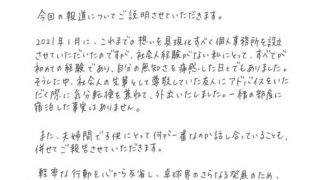 今回の報道についてご説明させていただきます。
2021年1月に、これまでの想いを具現化すべく個人事務所を設立
させていただいたのですが、社会人経験がない私にとって、すべてが
初めての経験であり、自分の無知さも痛感した日々でもありました。
そうした中、社会人の先輩として尊敬していた友人にアドバイスをいた
だく際に気分転換を兼ねて、外出いたしました。一緒の部屋に
宿泊した事実はありません。
また、夫婦間で子供にとって何が一番なのか話し合っていることも、
併せてご報告させていただきます。
軽率な行動を心から反省し、卓球界のさらなる発展のため、